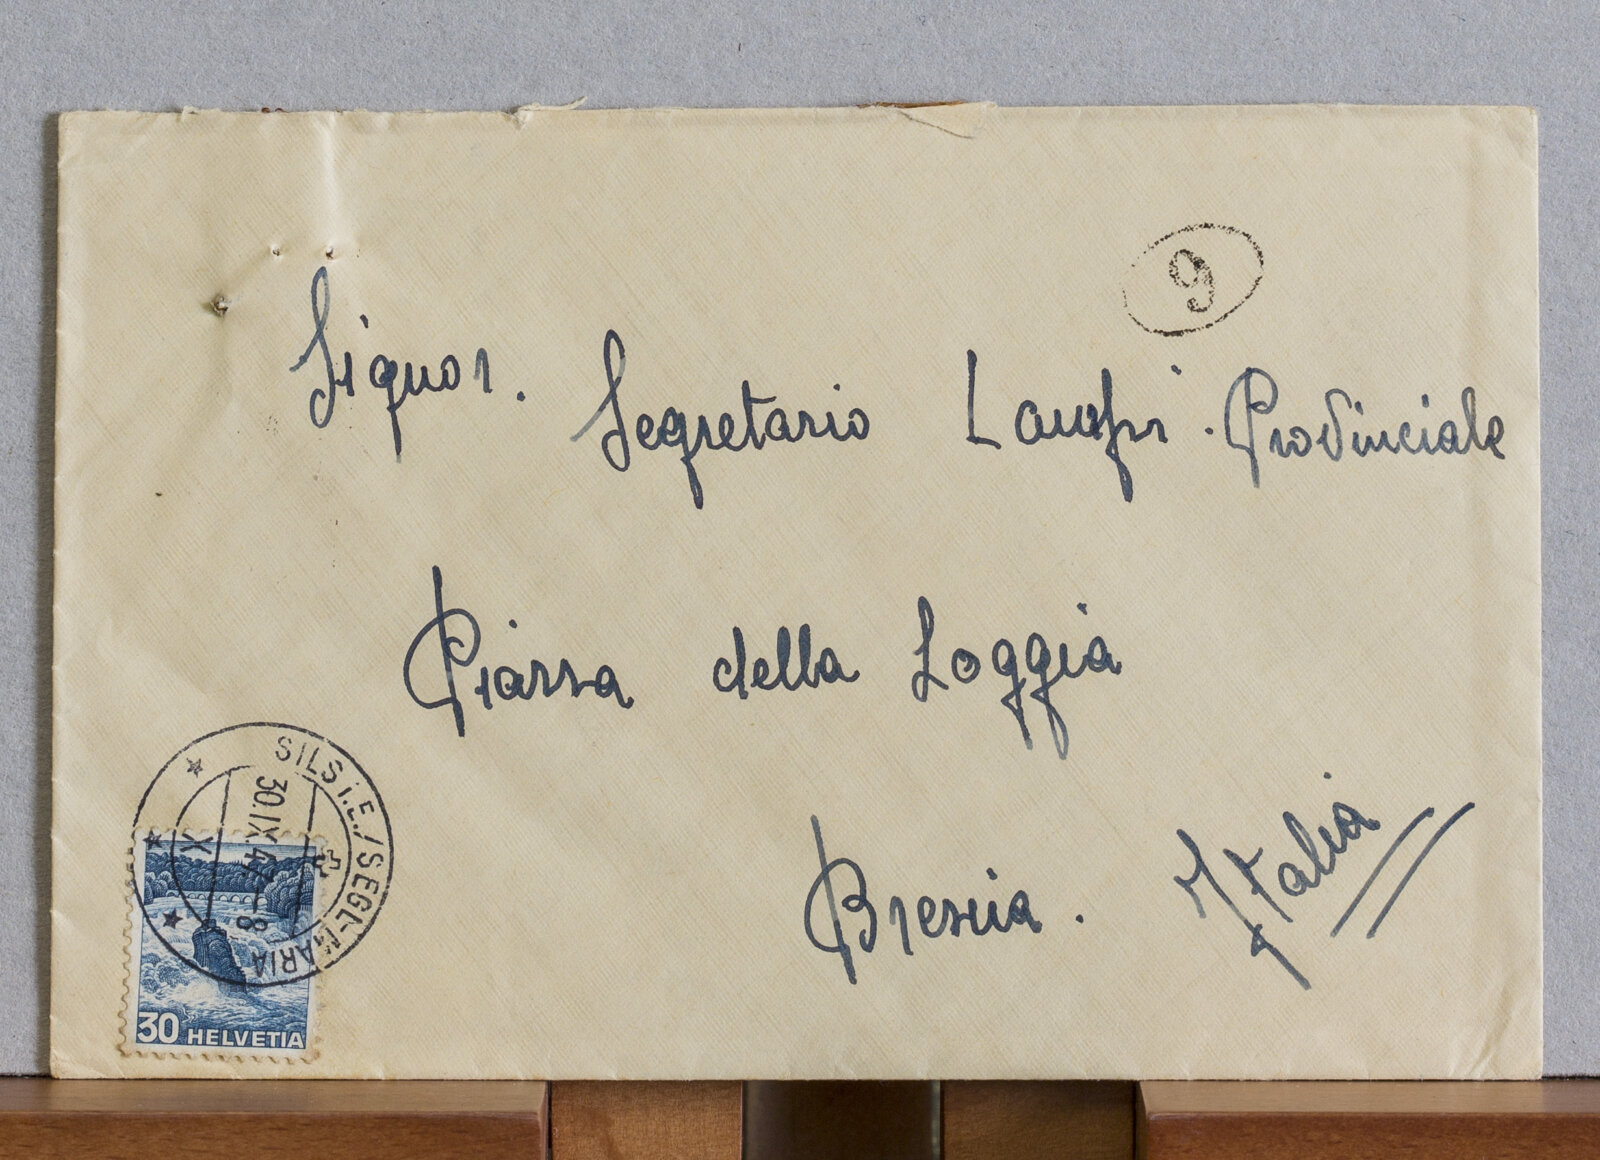 9
Signor. Segretario Provinciale
Piazza della Loggia
Brescia. Italia
SILS i.E./SEGL-MARIA
30.IX.4 -8
X
30 HELVETIA